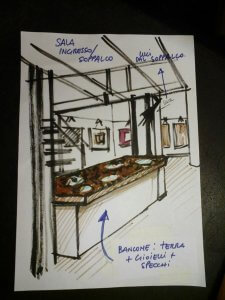 SALA
INGRESSO/
SOPPALCO
LUCI
DAL SOPPALCO
BANCONE: TERRA
+ GIOIELLI +
SPECCHI